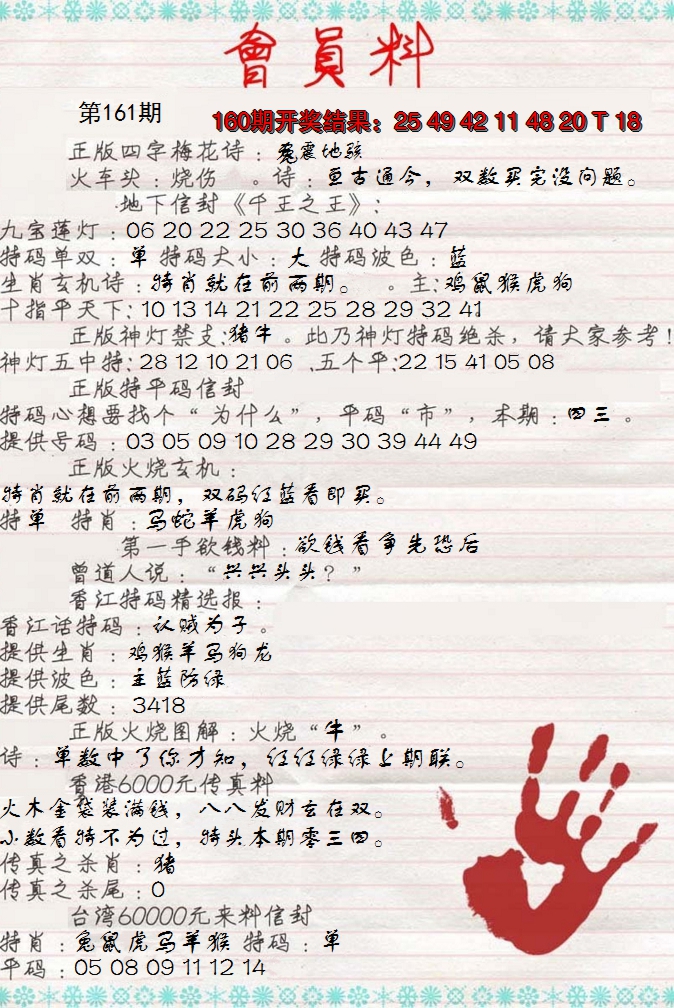 會員料
第161期
160期开奖结果：25 49 42 11 48 20 T 18
正版四字梅花诗：冤震地骇
火车头：烧伤 。诗：亘古通今，双数买完没问题。
地下信封《千王之王》：
九宝莲灯：06 20 22 25 30 36 40 43 47
特码单双：单 特码大小：大 特码波色：蓝
生肖玄机诗：特肖就在前两期。 。主：鸡鼠猴虎狗
十指平天下：10 13 14 21 22 25 28 29 32 41
正版神灯禁支：猪牛 。此乃神灯特码绝杀，请大家参考！
神灯五中特：28 12 10 21 06 、五个平：22 15 41 05 08
正版特平码信封
特码心想要找个“为什么”，平码“市”，本期：四三 。
提供号码：03 05 09 10 28 29 30 39 44 49
正版火烧玄机：
特肖就在前两期，双码红蓝看即买。
特单 特肖：马蛇羊虎狗
第一手欲钱料：欲钱看争先恐后
曾道人说：“兴兴头头？”
香江特码精选报：
香江话特码：认贼为子 。
提供生肖：鸡猴羊马狗龙
提供波色：主蓝防绿
提供尾数：3418
正版火烧图解：火烧“牛”。
诗：单数中了你才知，红红绿绿上期联。
香港6000元传真料
火木金袋装满钱，八八发财玄在双。
小数看特不为过，特头本期零三四。
传真之杀肖：猪
传真之杀尾：0
台湾60000元来料信封
特肖：兔鼠虎马羊猴 特码：单
平码：05 08 09 11 12 14